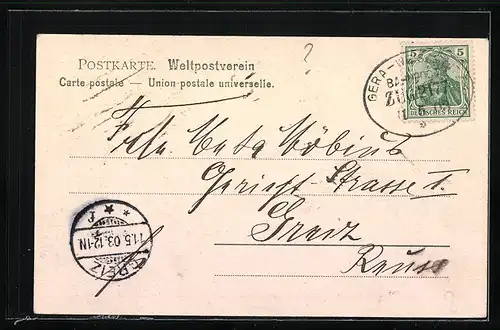 ?
POSTKARTE. Weltpostverein
Carte postale — Union postale universelle.
GERA-W
BA
ZUG 217
11 5
5 5
DEUTSCHES REICH
Frln. Meta Möbius
Gericht Strasse I.
Greiz
Reuss
GREIZ
11.5.03.12-1N